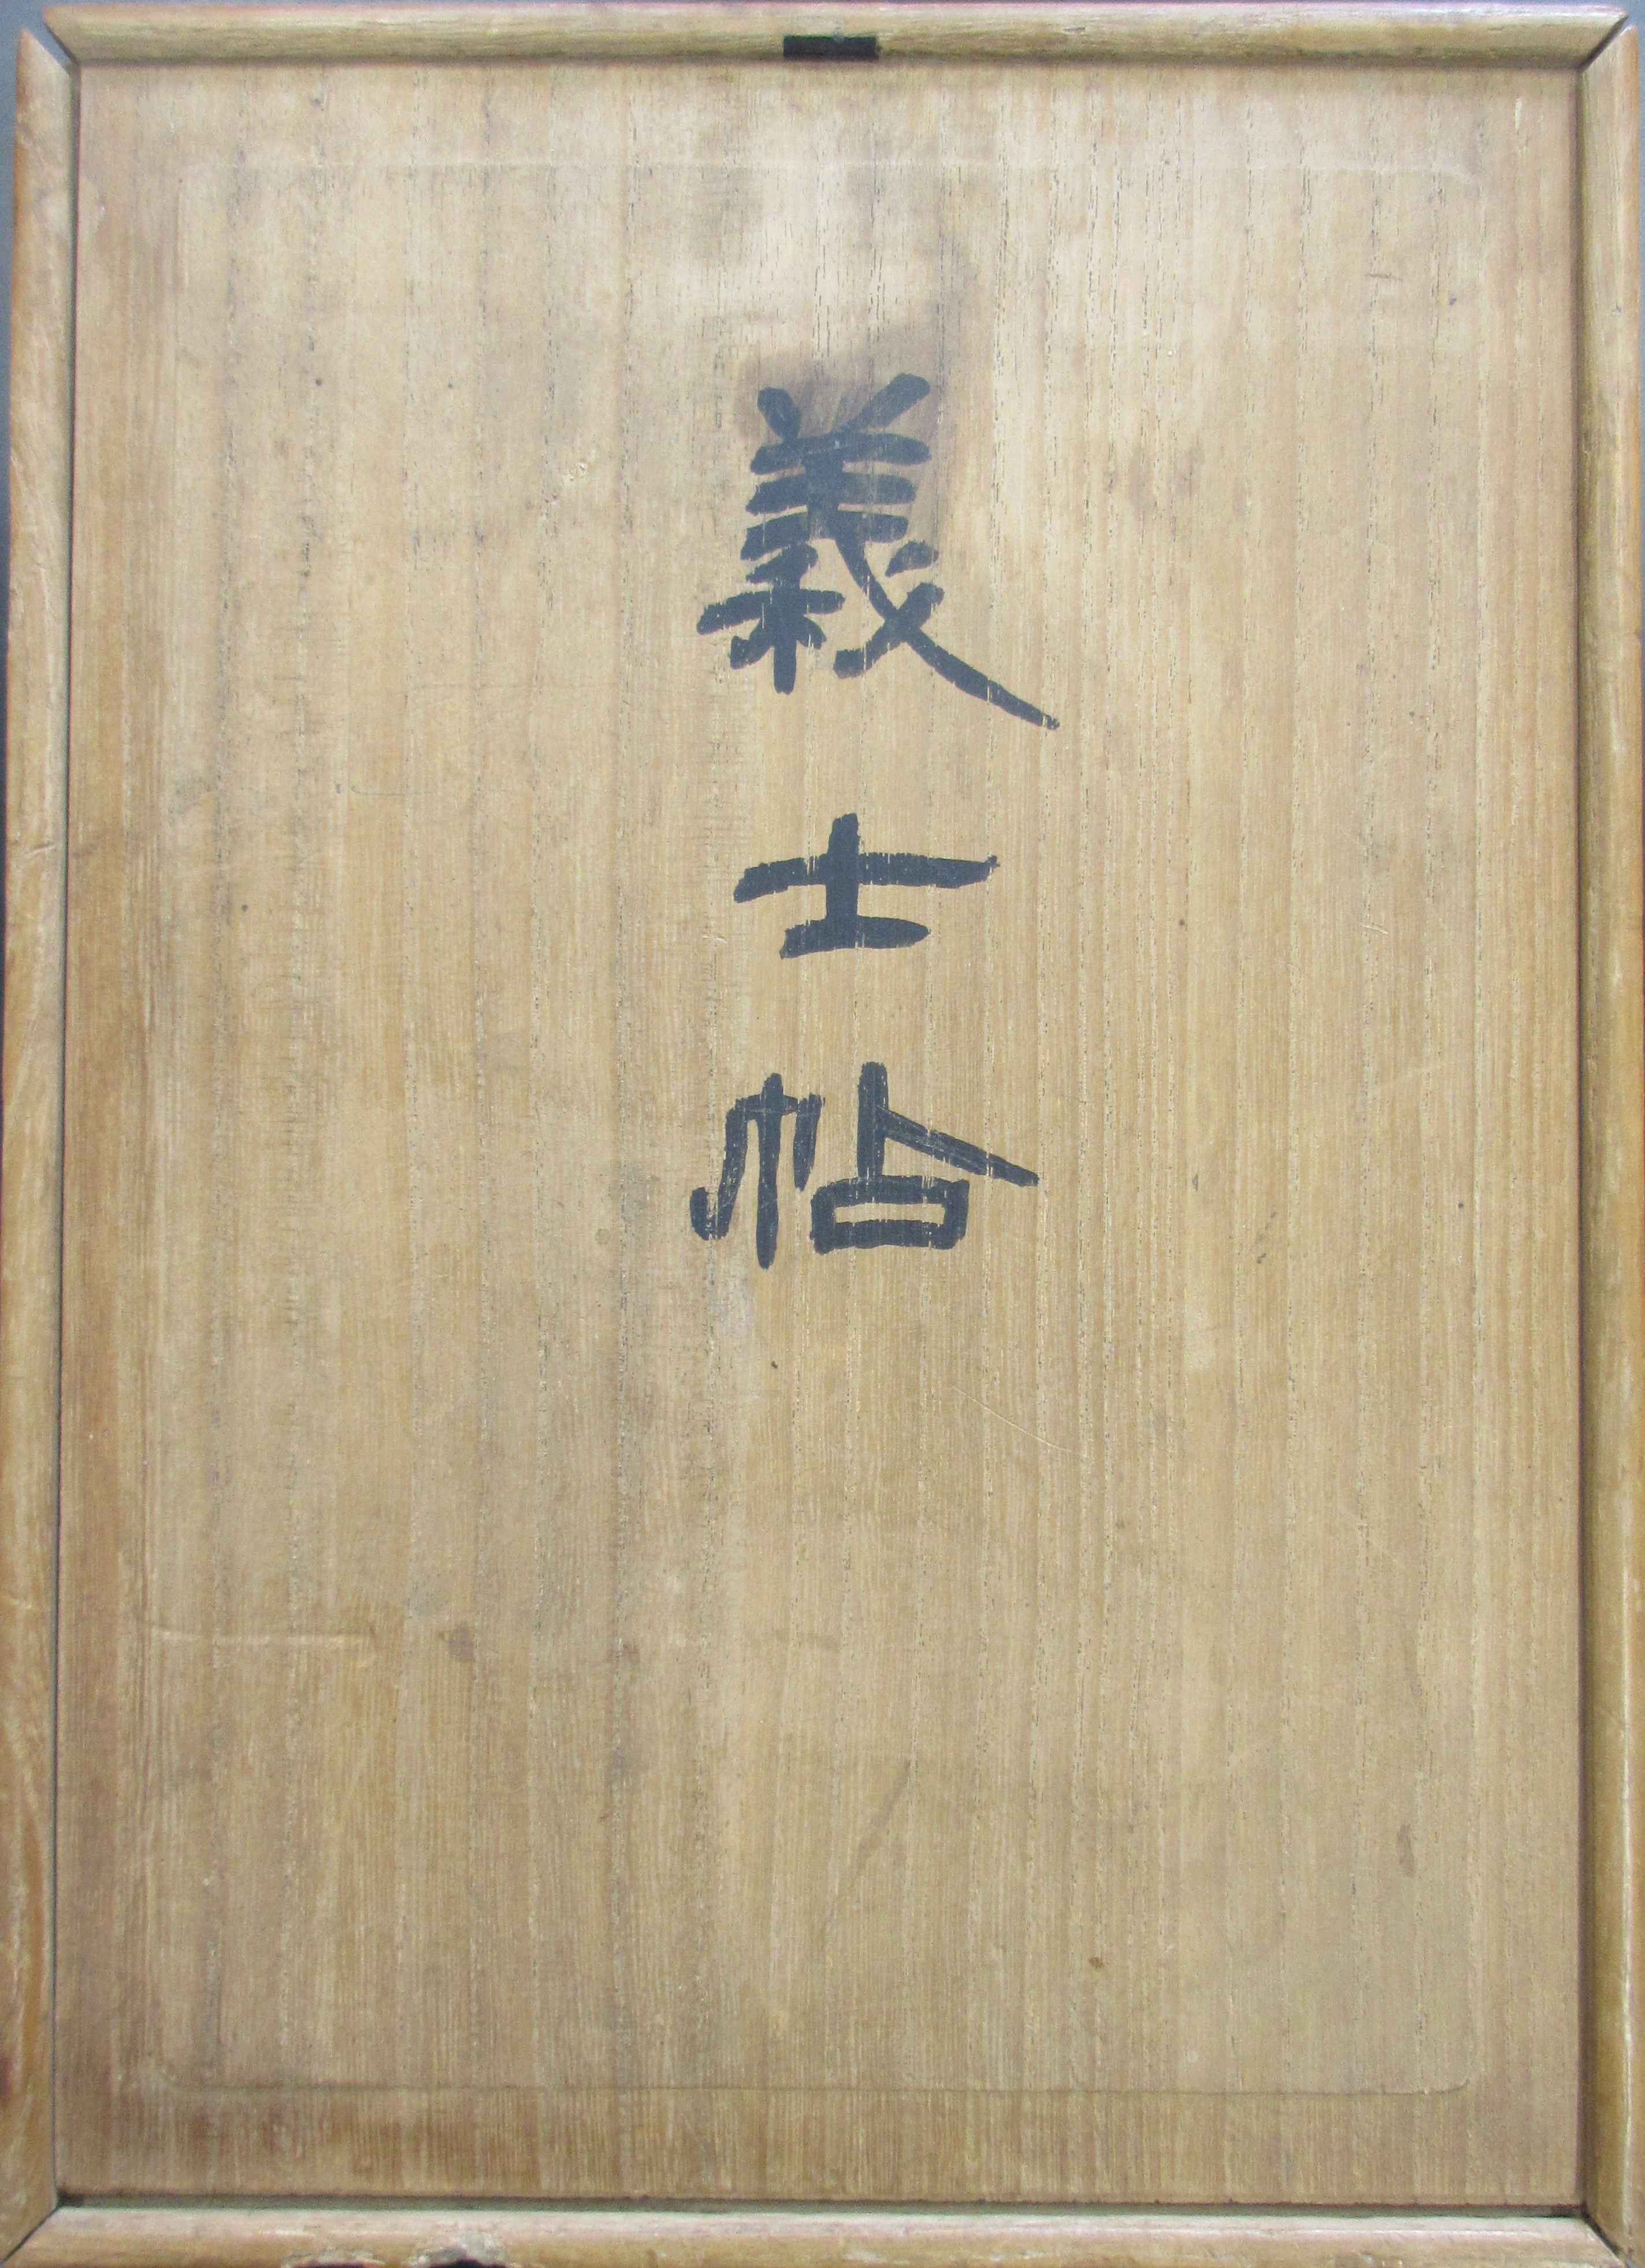 義士帖